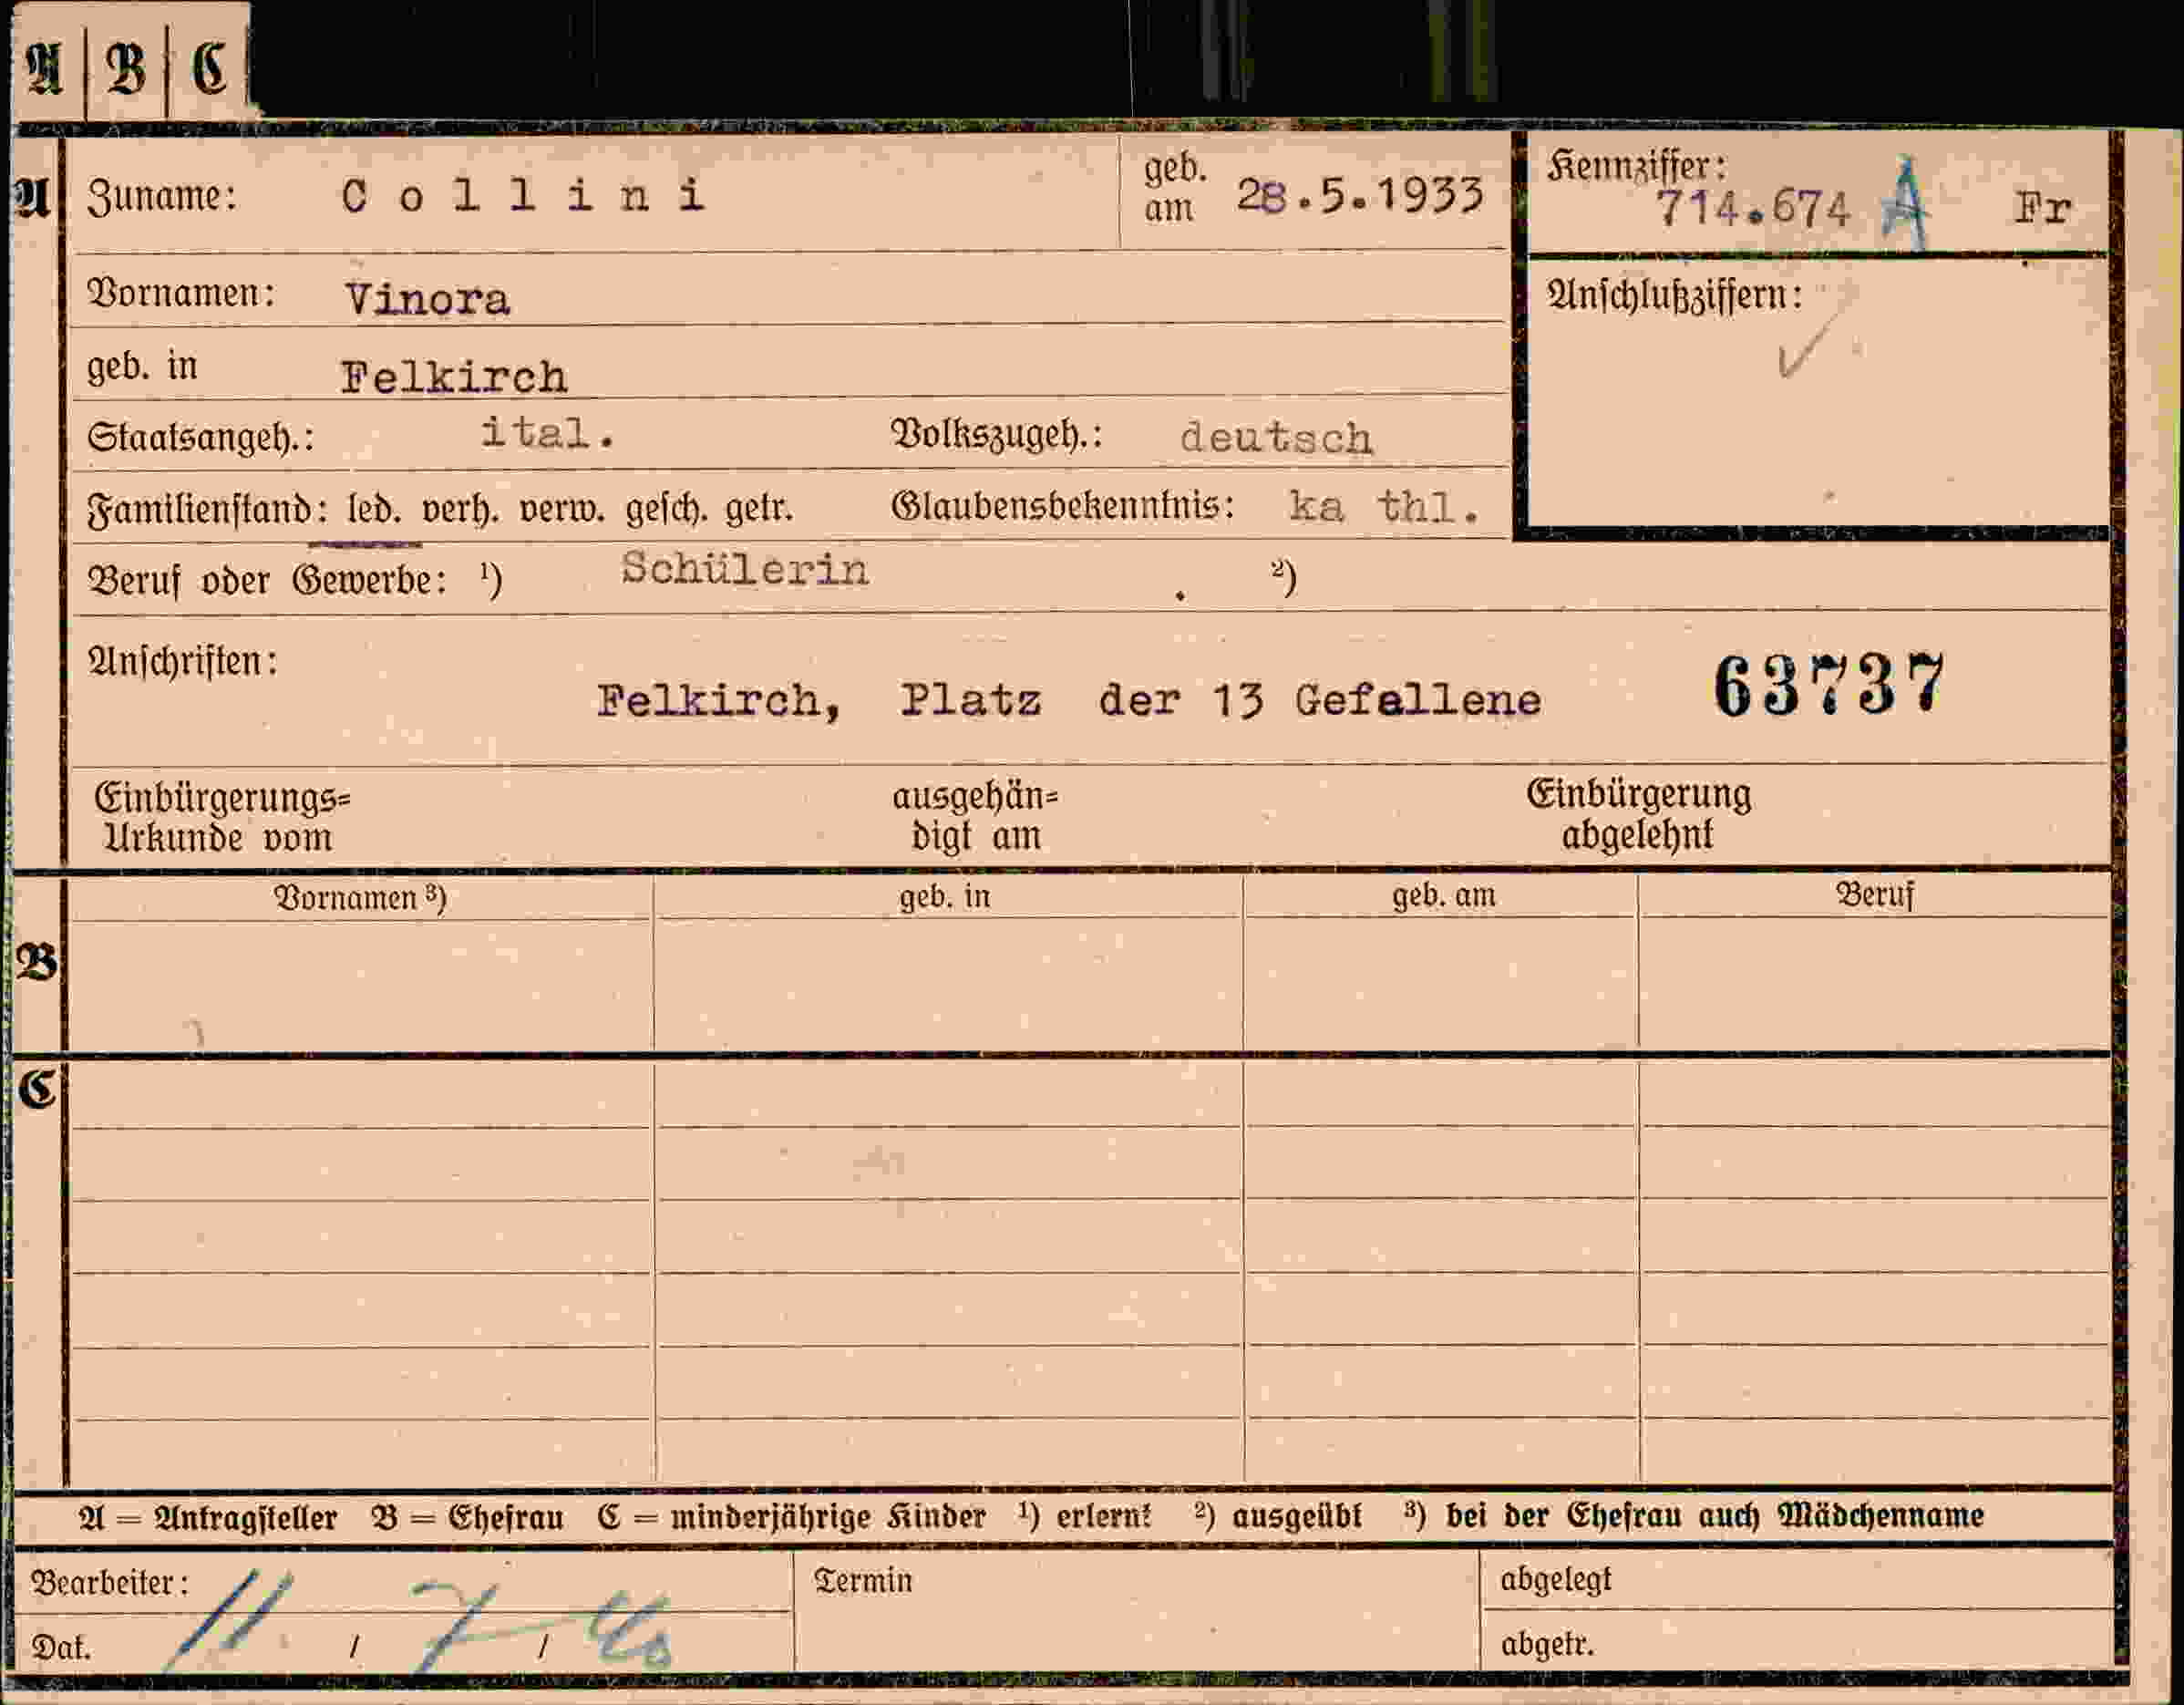 A | B | C
A Zuname: Collini geb. am 28.5.1933 Kennziffer: 714.674 A Fr
Vornamen: Vinora Anschlußziffern: ✓
geb. in Felkirch
Staatsangeh.: ital. Volkszugeh.: deutsch
Familienstand: led. verh. verw. gesch. getr. Glaubensbekenntnis: ka thl.
Beruf oder Gewerbe: ¹) Schülerin . ²)
Anschriften: Felkirch, Platz der 13 Gefallene 63737
Einbürgerungs= ausgehän= Einbürgerung
Urkunde vom digt am abgelehnt
Vornamen ³) geb. in geb. am Beruf
B
C
A = Antragsteller B = Ehefrau C = minderjährige Kinder ¹) erlernt ²) ausgeübt ³) bei der Ehefrau auch Mädchenname
Bearbeiter: Termin abgelegt
Dat. 11. / 7 / 40 abgetr.